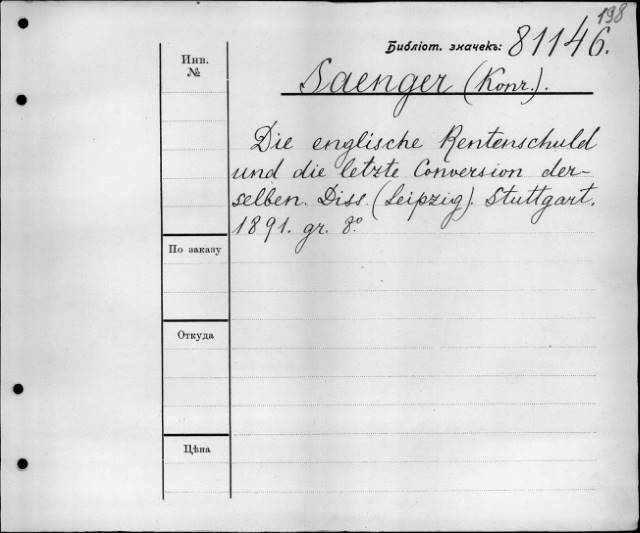 198
Библіот. значекъ: 81146.
Инв.
№
Saenger (Konr.).
Die englische Rentenschuld
und die letzte Conversion der-
selben. Diss. (Leipzig). Stuttgart.
1891. gr. 8º
По заказу
Откуда
Цѣна